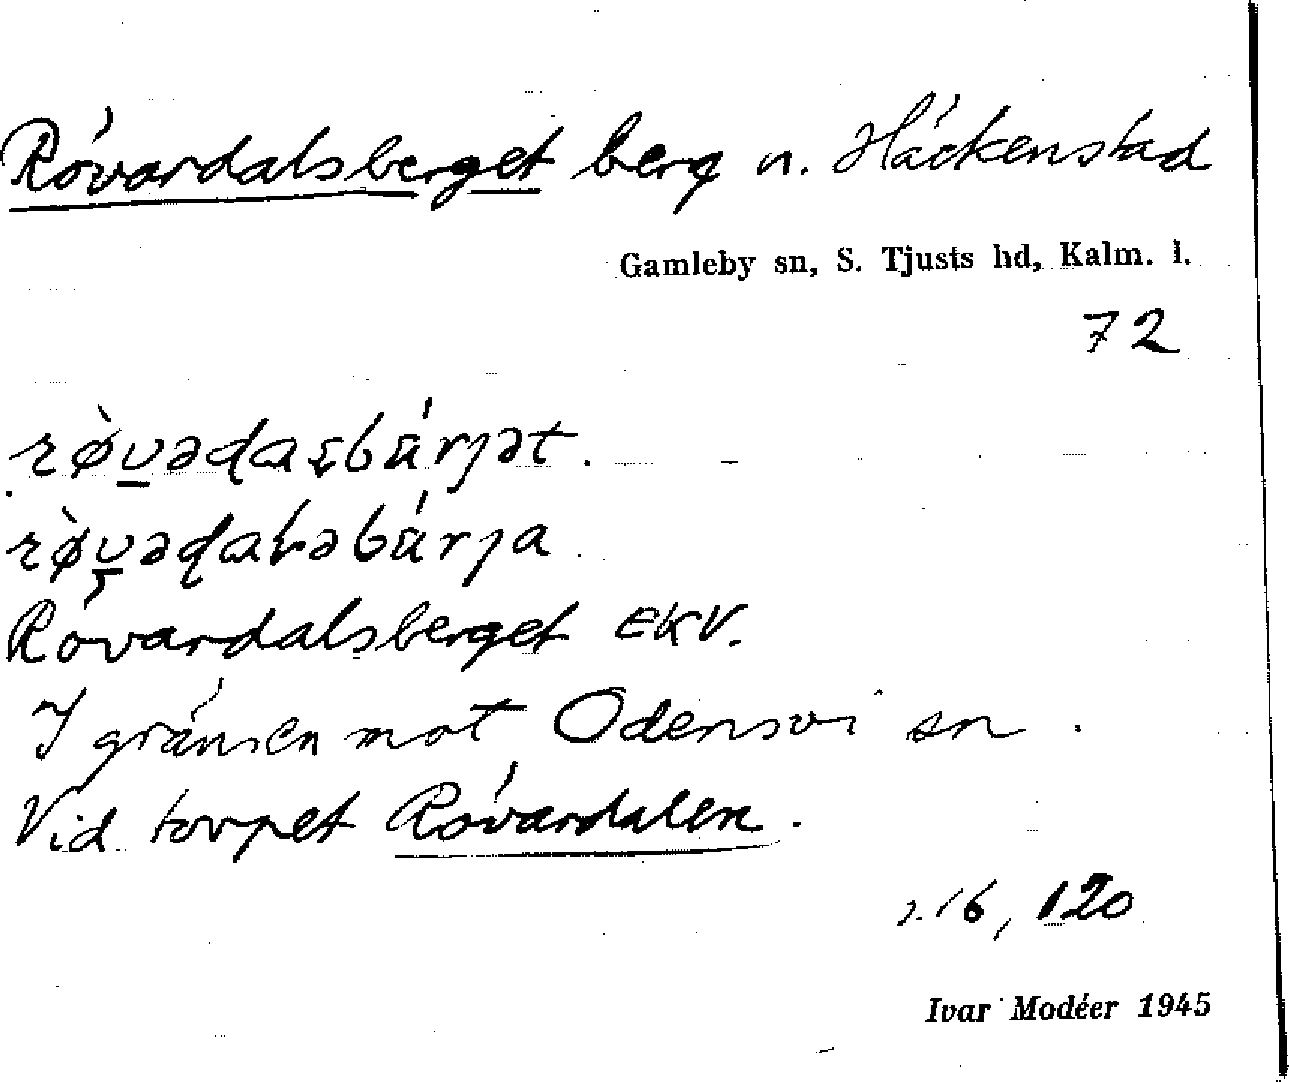 Rövardalsberget berg n. Häckenstad
Gamleby sn, S. Tjusts hd, Kalm. l.
72
Rövardalsberget EKV.
I gränsen mot Odensvi sn.
Vid torpet Rövardalen.
s. 16, 120
Ivar Modéer 1945